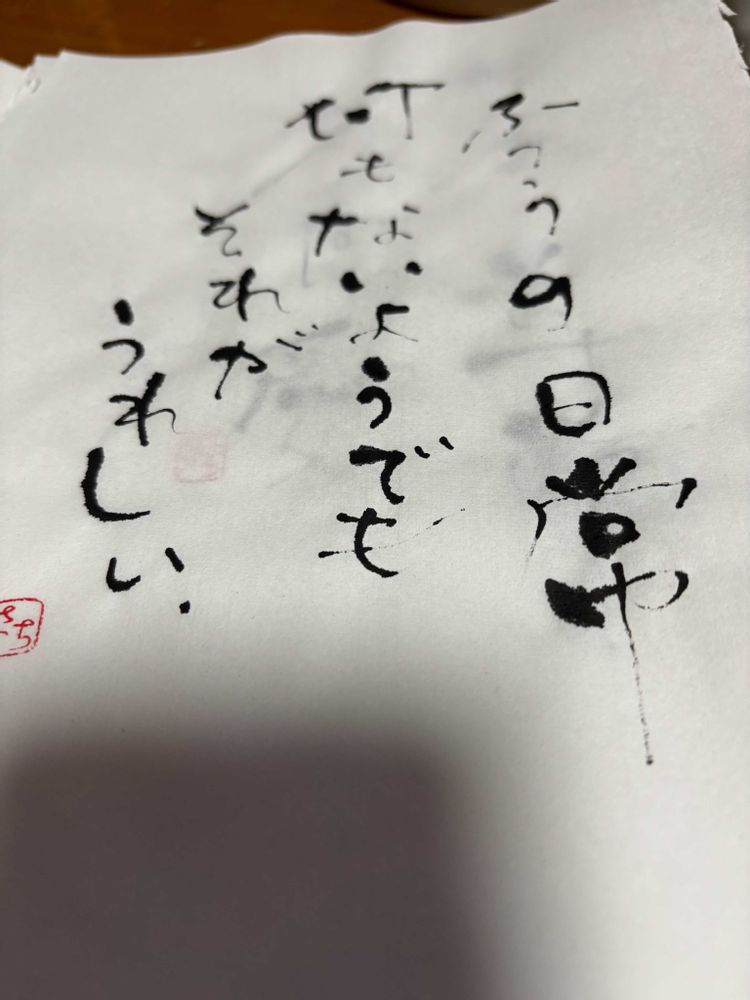 ふつうの日常や
何もないようでも
それが
うれしい.